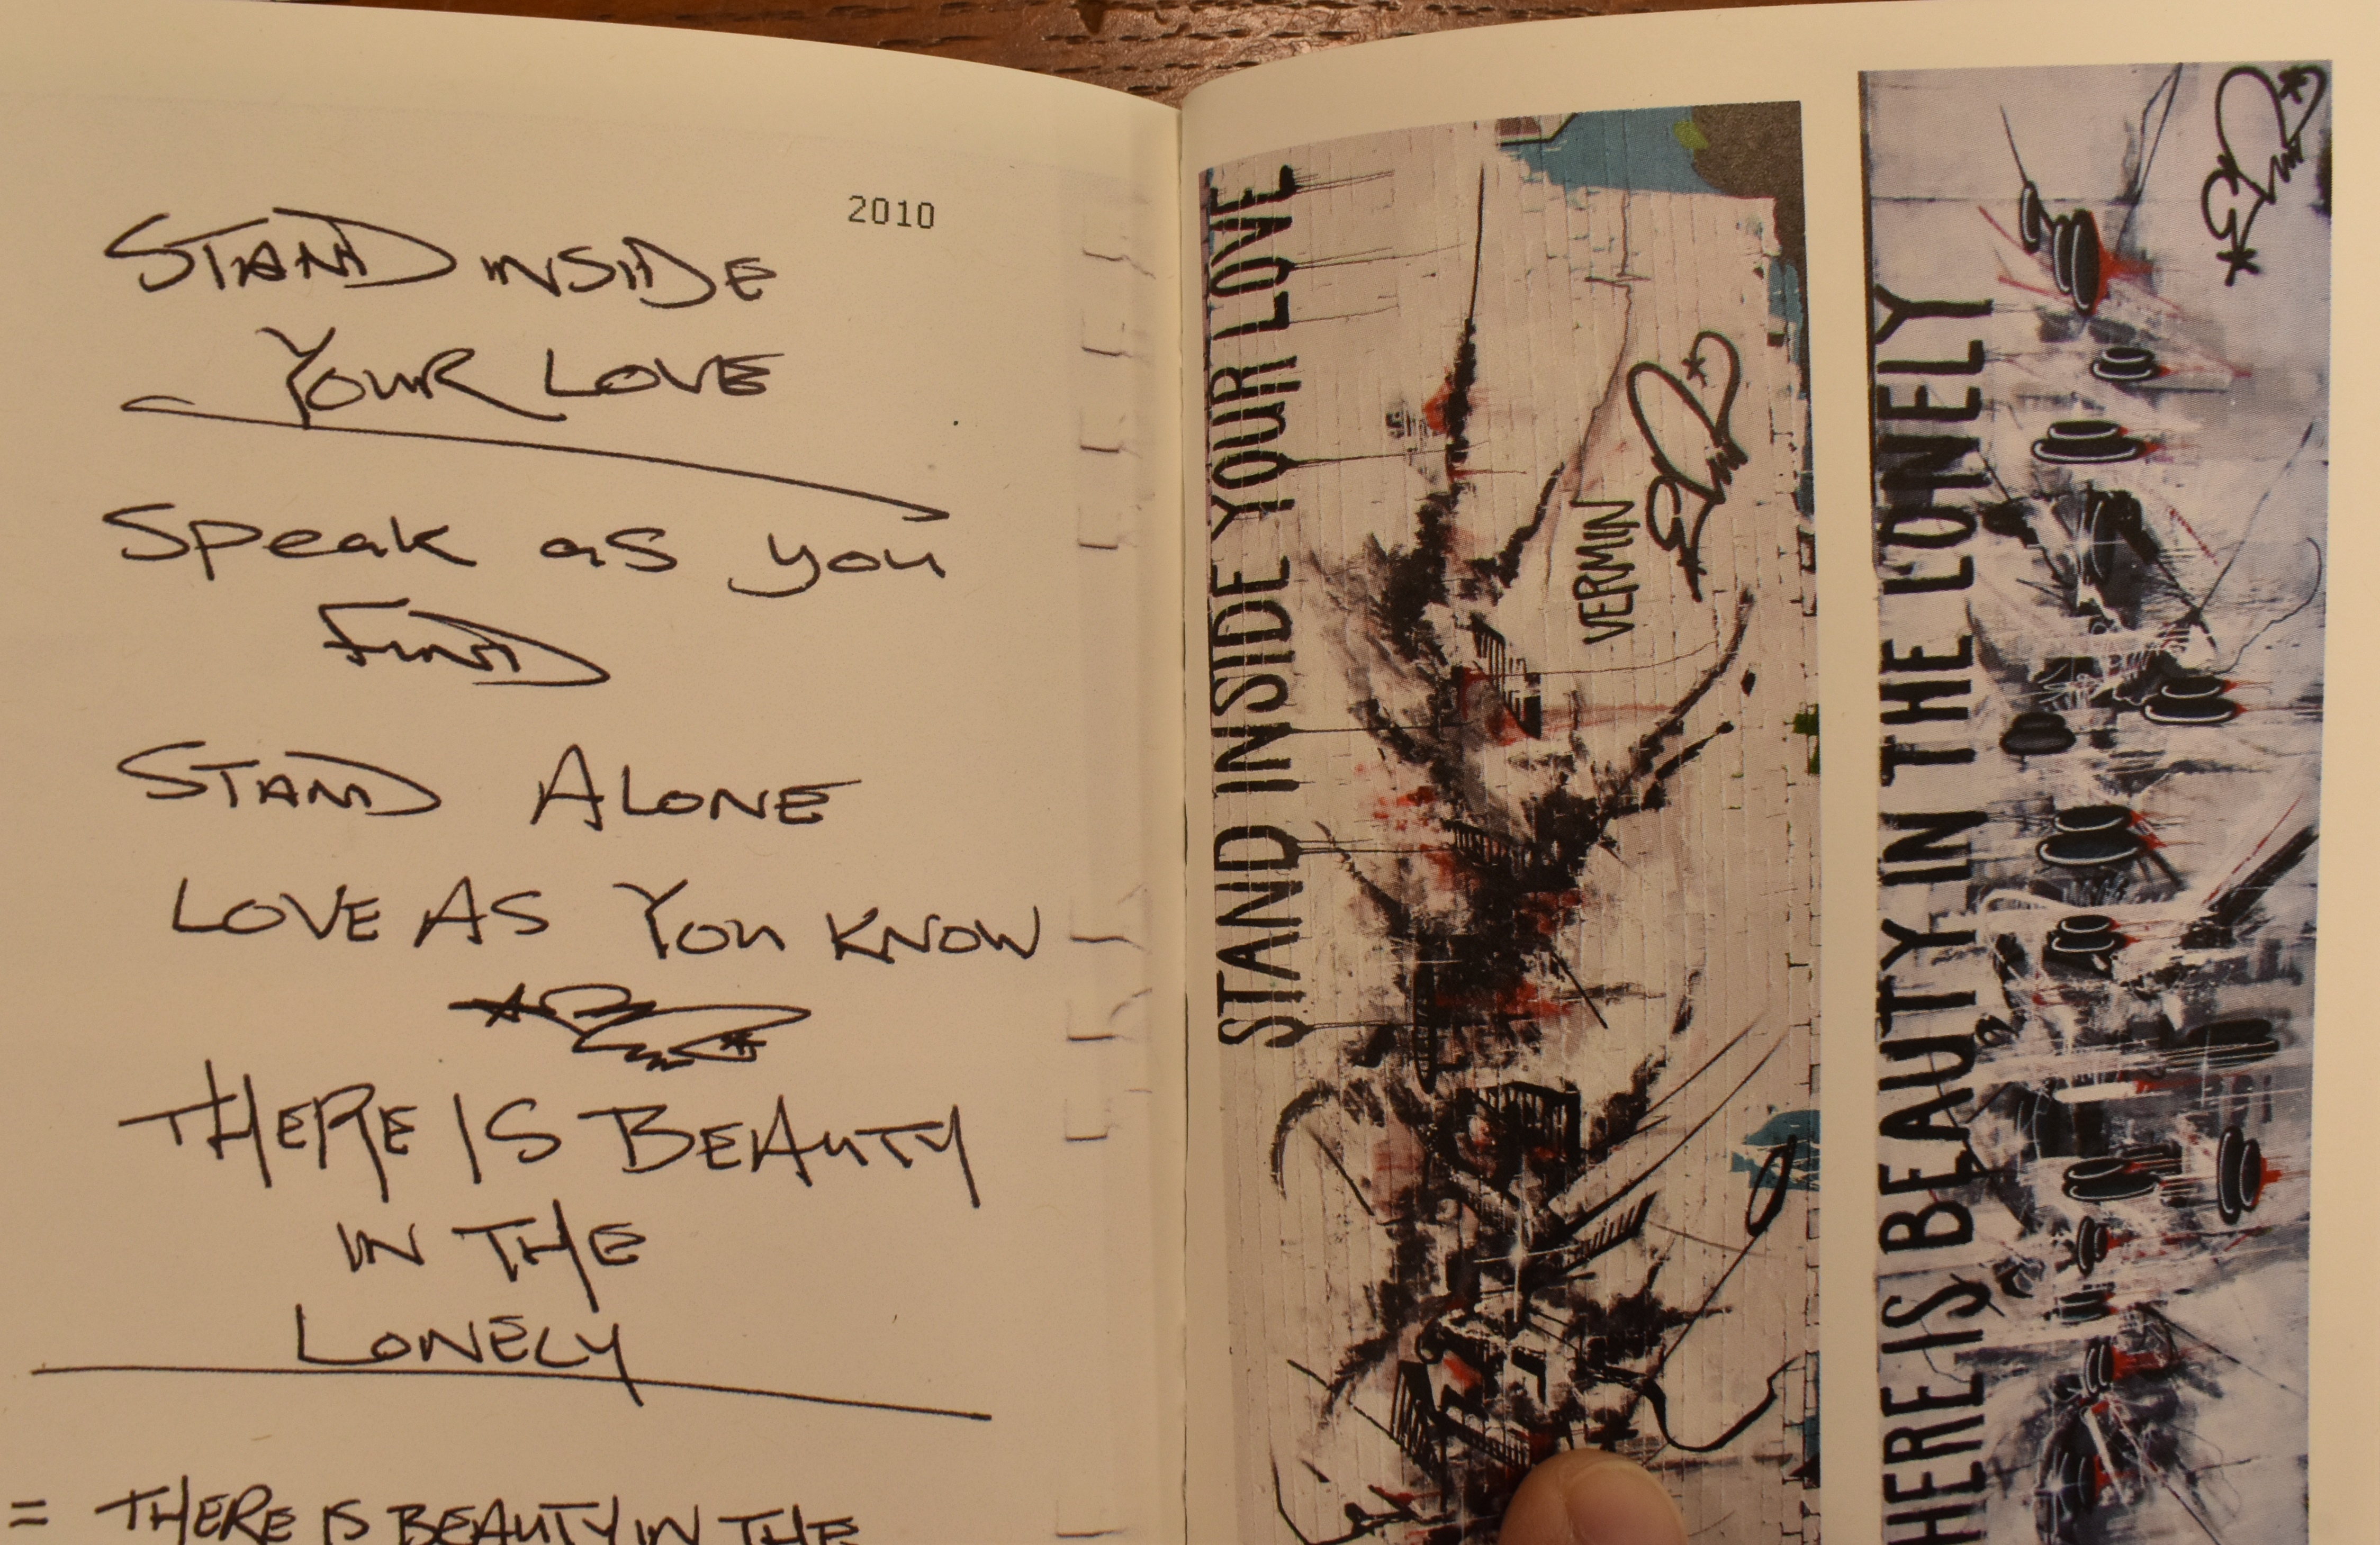 2010
STAND INSIDE
YOUR LOVE
Speak as you
FIND
STAND ALONE
LOVE AS YOU KNOW
THERE IS BEAUTY
IN THE
LONELY
= THERE IS BEAUTY IN THE
STAND INSIDE YOUR LOVE
VERMIN
HERE IS BEAUTY IN THE LONELY